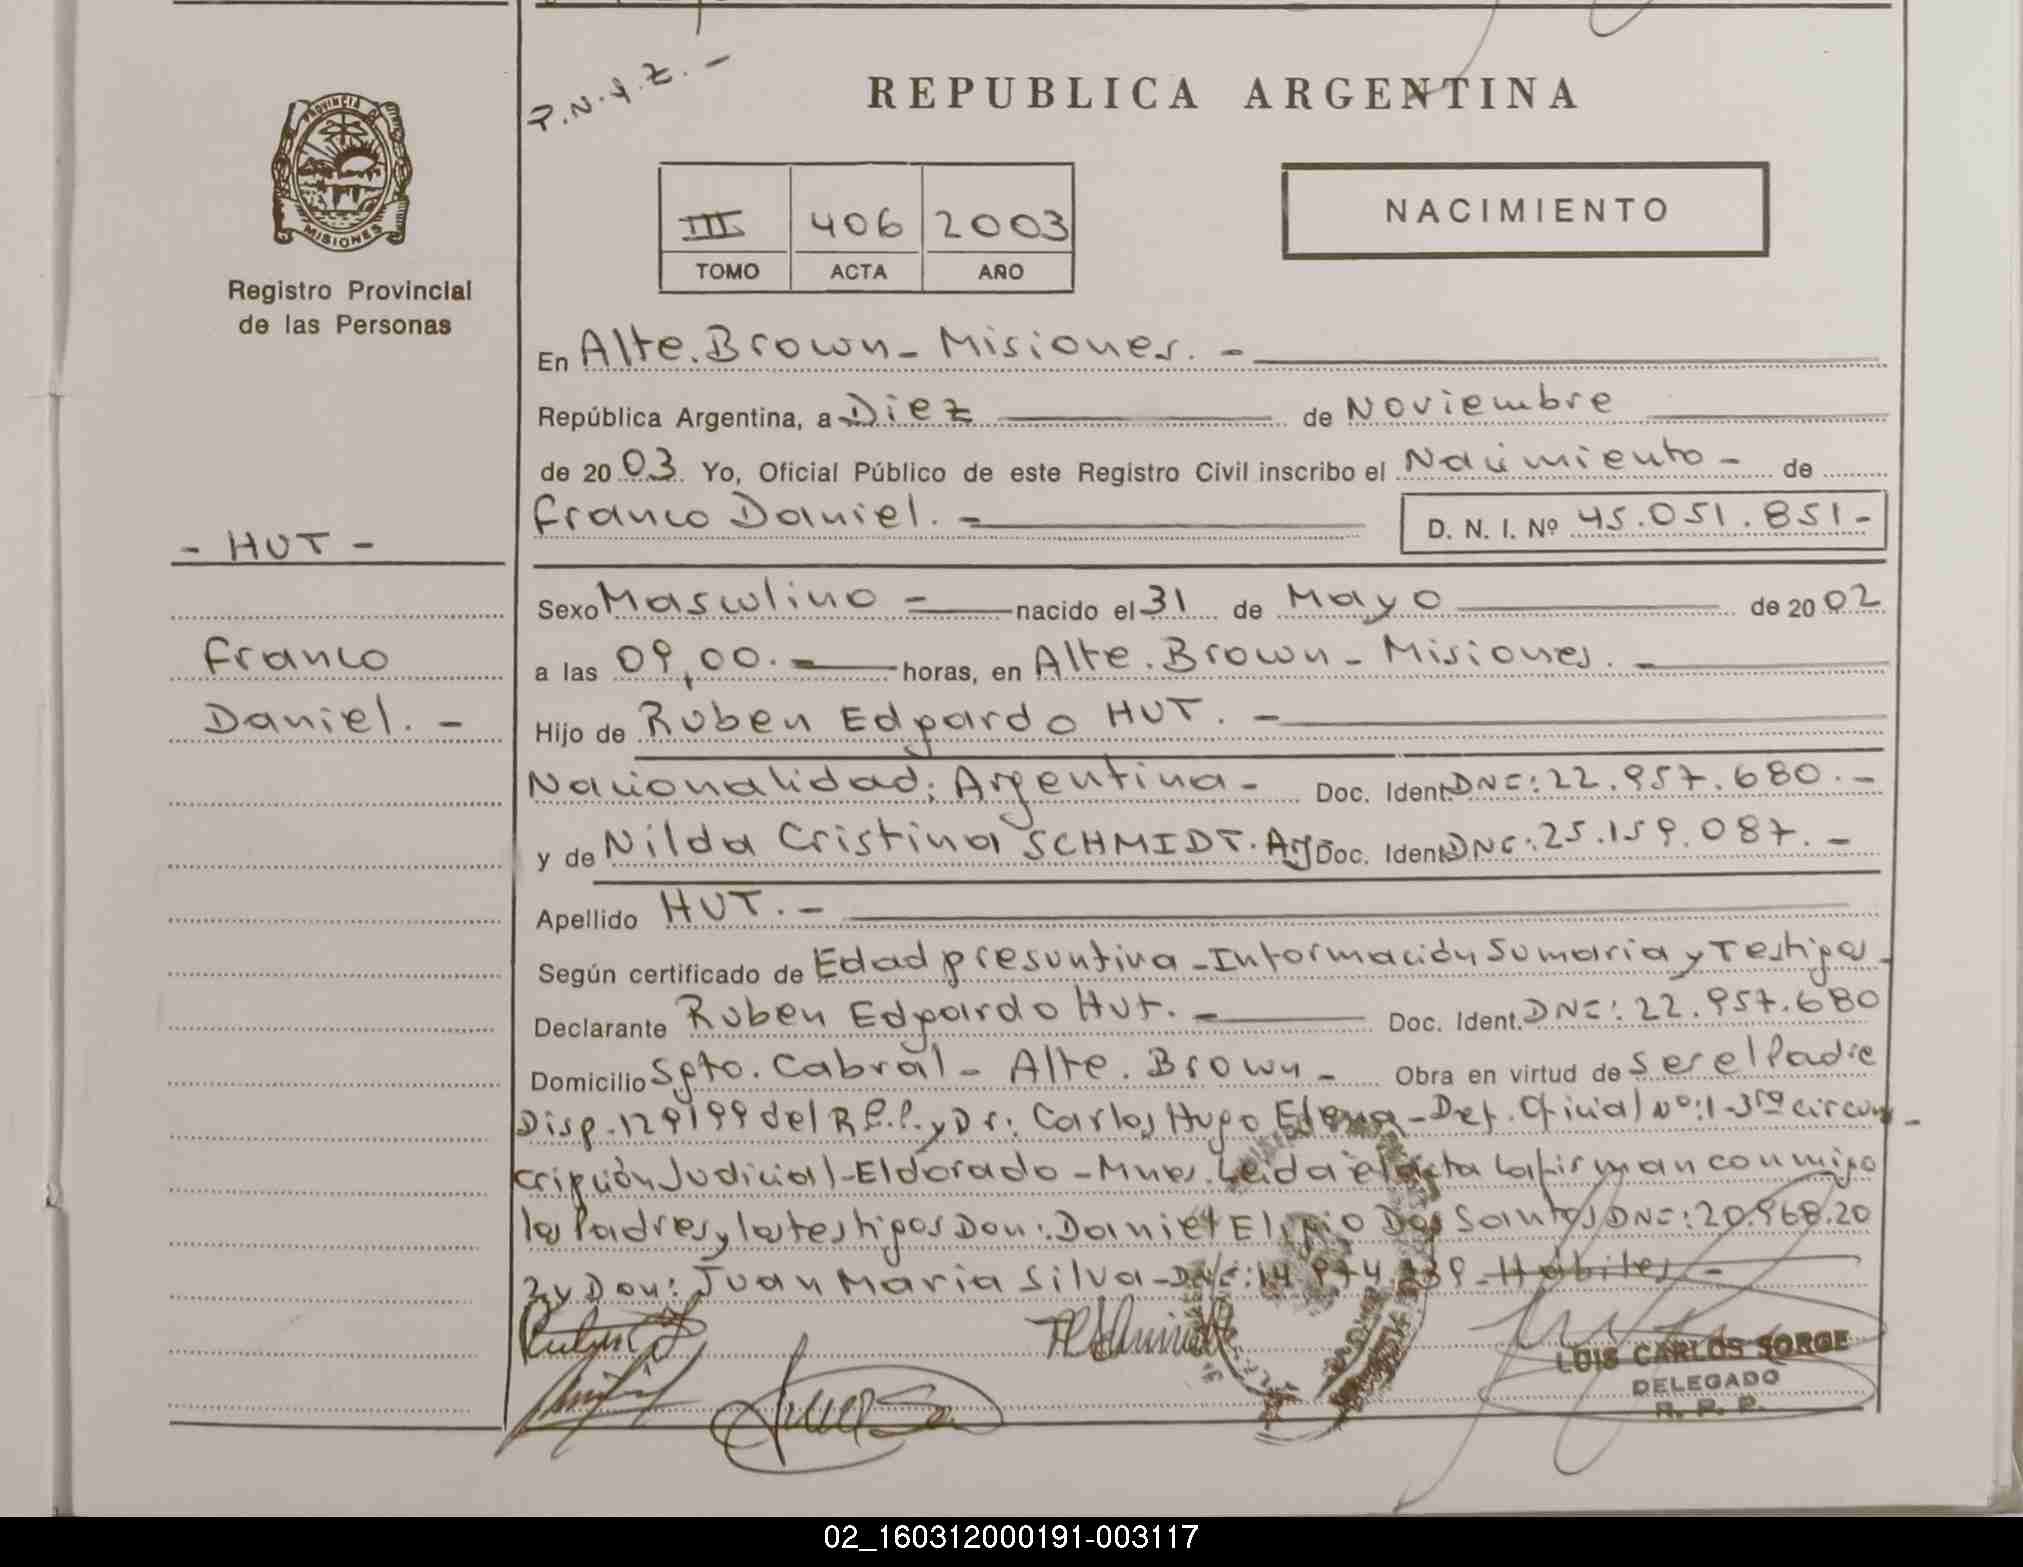 P.N.y.Z. -
REPUBLICA ARGENTINA
PROVINCIA DE MISIONES
Registro Provincial
de las Personas
III 406 2003
TOMO ACTA AÑO
NACIMIENTO
En Alte. Brown - Misiones. -
República Argentina, a Diez de Noviembre
de 2003 Yo, Oficial Público de este Registro Civil inscribo el Nacimiento - de
Franco Daniel. - D. N. I. Nº 45.051.851-
- HUT -
Franco
Daniel. -
Sexo Masculino - nacido el 31 de Mayo de 2002
a las 09,00. - horas, en Alte. Brown - Misiones. -
Hijo de Ruben Edgardo HUT. -
Nacionalidad: Argentina - Doc. Ident. DNI: 22.957.680. -
y de Nilda Cristina SCHMIDT. Arg Doc. Ident. DNI: 25.159.087. -
Apellido HUT. -
Según certificado de Edad presuntiva - Información Sumaria y Testigos -
Declarante Ruben Edgardo Hut. - Doc. Ident. DNI: 22.957.680
Domicilio Sgto. Cabral - Alte. Brown - Obra en virtud de ser el Padre
Disp. 129/99 del R.P.P. y Dr: Carlos Hugo - Def. Oficial Nº: 1 - 3ra circuns-
cripción Judicial - Eldorado - Mnes. Leida el acta la firman conmigo
los Padres y los testigos Don: Daniel Dos Santos DNI: 20.968.20
2 y Don: Juan Maria Silva - DNI: - Hábiles -
LUIS CARLOS SORGE
DELEGADO
R. P. P.
02_160312000191-003117